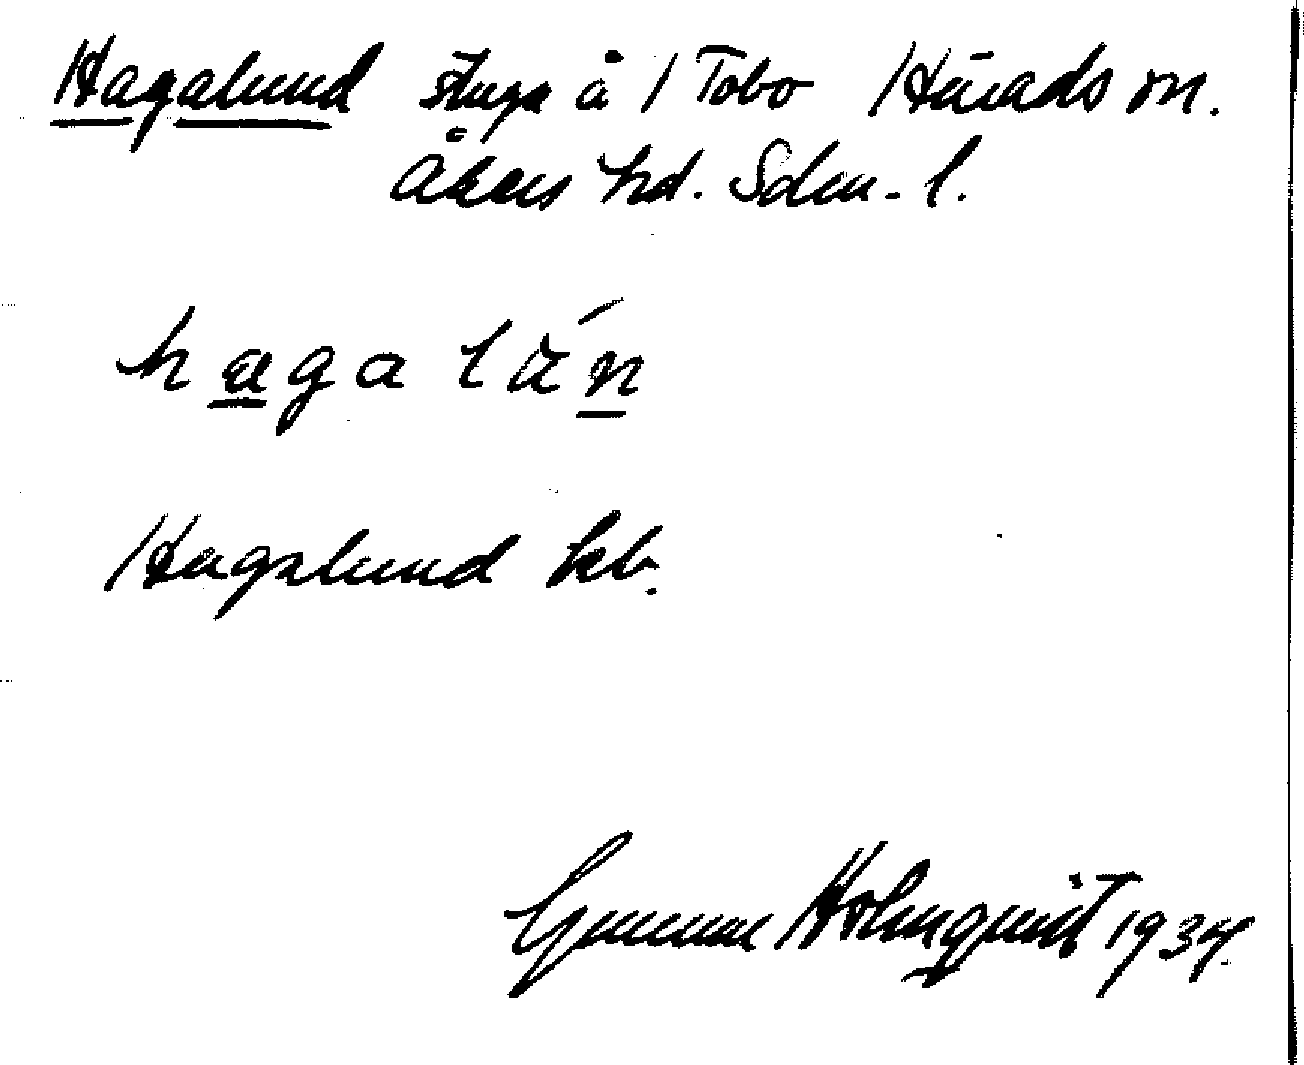 Hagalund stuga å 1 Tobo Härads sn.
Åkers hd. Sdm. l.
hagalán
Hagalund kb.
Gunnar Holmquist 1934.